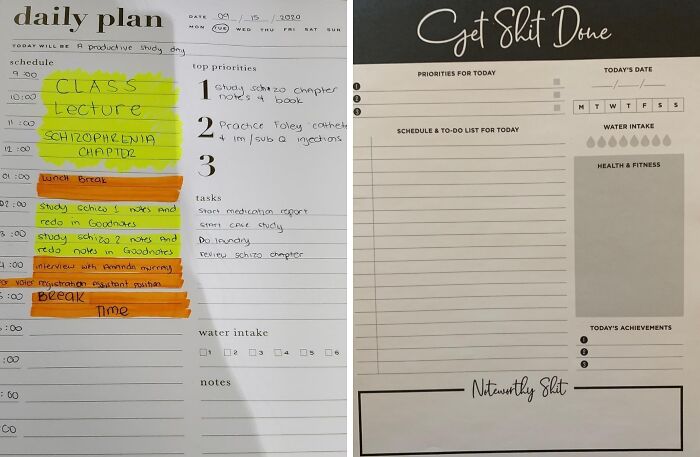 daily plan
DATE 09 / 15 / 2020
MON TUE WED THU FRI SAT SUN
TODAY WILL BE A productive study day
schedule
9:00
10:00
CLASS
Lecture
11:00
SCHIZOPHRENIA
12:00
CHAPTER
01:00 Lunch Break
02:00 Study schizo 1 notes and
redo in Goodnotes
3:00 study schizo 2 notes and
redo notes in Goodnotes
4:00 interview with Amanda murray
for voter registration assistant position
5:00 BREAK
Time
:00
:00
:00
:00
top priorities
1 Study schizo chapter
notes & book
2 Practice Foley cathete
& im/sub Q injections
3
tasks
start medication report
start case study
Do laundry
review schizo chapter
water intake
1 2 3 4 5 6
notes
Get Shit Done
PRIORITIES FOR TODAY
1
2
3
TODAY'S DATE
__/__/__
M T W T F S S
SCHEDULE & TO-DO LIST FOR TODAY
WATER INTAKE
HEALTH & FITNESS
TODAY'S ACHIEVEMENTS
1
2
3
Noteworthy Shit